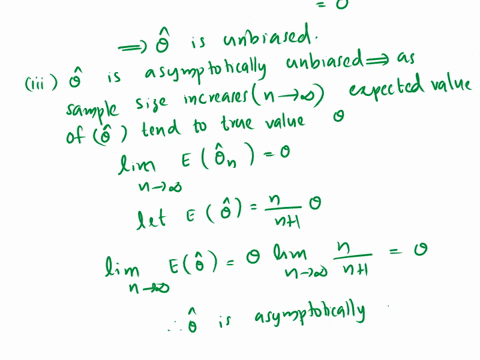 = θ
⟹ θ̂ is unbiased.
(iii) θ̂ is asymptotically unbiased ⟹ as
sample size increases (n→∞) expected value
of (θ̂) tend to true value θ
lim n→∞ E(θ̂n) = θ
let E(θ̂) = n/n+1 θ
lim n→∞ E(θ̂) = θ lim n→∞ n/n+1 = θ
∴ θ̂ is asymptotically